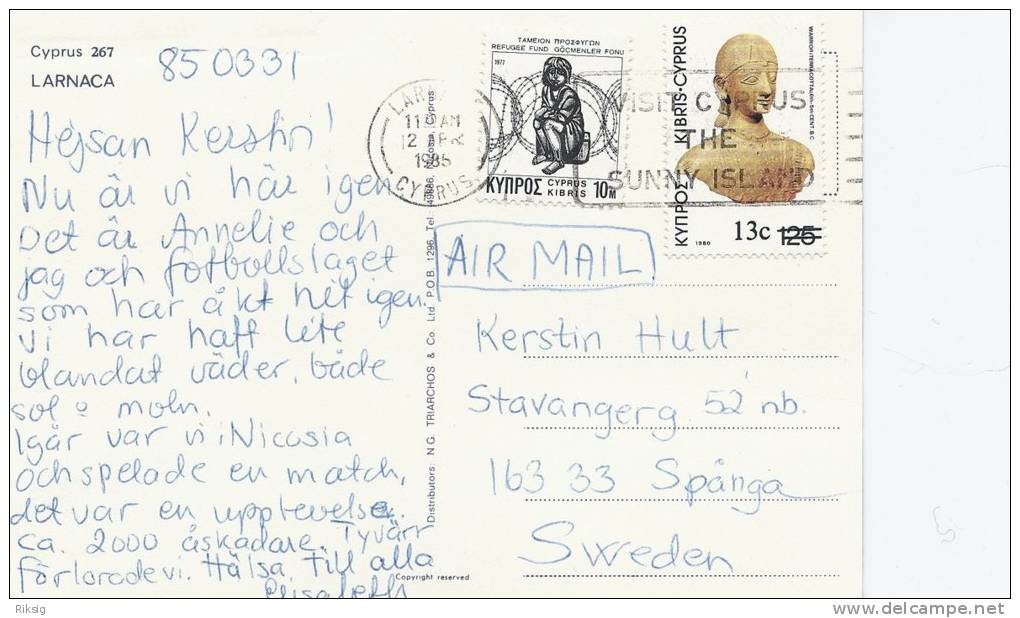 Cyprus 267
LARNACA
850331
Hejsan Kerstin!
Nu är vi här igen
Det är Annelie och
jag och fotbollslaget
som har åkt hit igen.
Vi har haft lite
blandat väder, både
sol o moln.
Igår var vi i Nicosia
och spelade en match,
det var en upplevelse.
ca. 2000 åskådare. Tyvärr
förlorade vi. Hälsa till alla
Elisabeth
Distributors: N.G. TRIARCHOS & Co. Ltd P.O.B. 1296, Tel Cyprus
Copyright reserved
11 AM
2
1985
CYPRUS
ΤΑΜΕΙΟΝ ΠΡΟΣΦΥΓΩΝ
REFUGEE FUND GÖÇMENLER FONU
1977
ΚΥΠΡΟΣ CYPRUS
KIBRIS 10M
VISIT CYPRUS
THE
SUNNY ISLAND
ΚΥΠΡΟΣ KIBRIS·CYPRUS
WARRIOR/TERRACOTTA
1980
13c 125
AIR MAIL
Kerstin Hult
Stavangerg 52 nb.
163 33 Spånga
Sweden
Riksig
delcampe.net